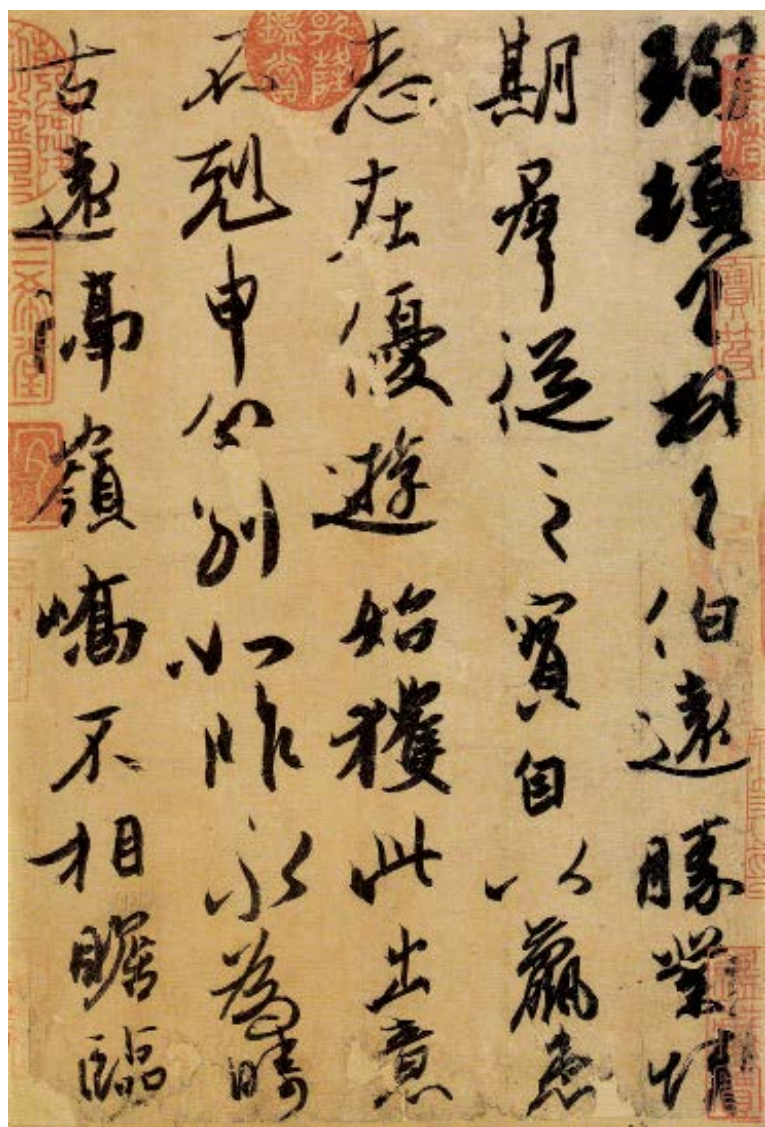 珣頓首頓首伯遠勝業情
期羣從之寶自以羸患
志在優遊始獲此出意
不剋申分別如昨永為疇
古遠隔嶺嶠不相瞻臨
乾隆鑑賞